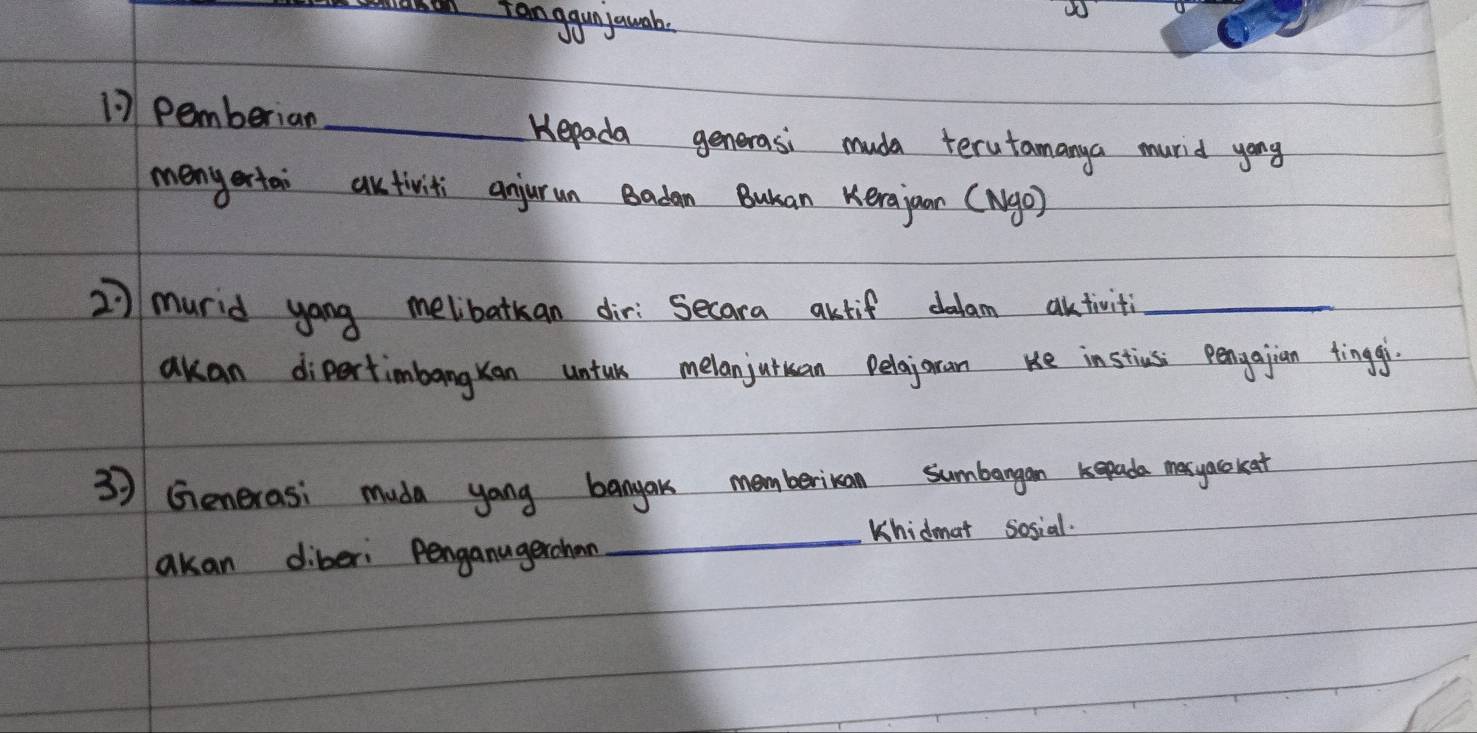 tanggunjawab.
1.) Pemberian ________ Kepada generasi muda terutamanya murid yang
menyertai aktiviti anjurun Badan Bukan Kerajaan (Ngo)
2.) murid yang melibatkan diri secara aktif dalam aktiviti ________
akan dipertimbangkan untuk melanjutkan Pelajaran ke instiusi Pengajian tinggi.
3.) Generasi muda yang banyak memberikan sumbangan kepada masyarakat
akan diberi Penganugerahan ________ Khidmat sosial.